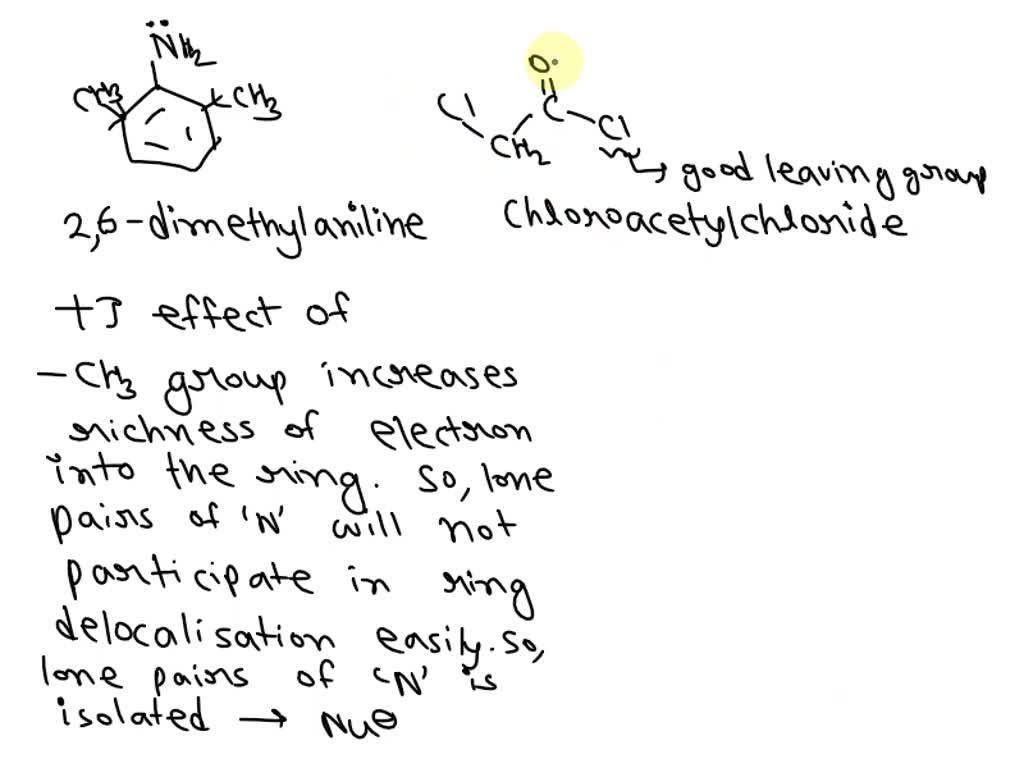 NH2
CH3
CH3
O
Cl
C
Cl
CH2
good leaving group
2,6-dimethylaniline
Chloroacetylchloride
+I effect of
-CH3 group increases
richness of electron
into the ring. So, lone
pairs of 'N' will not
participate in ring
delocalisation easily. So,
lone pairs of 'N' is
isolated → Nu⊖